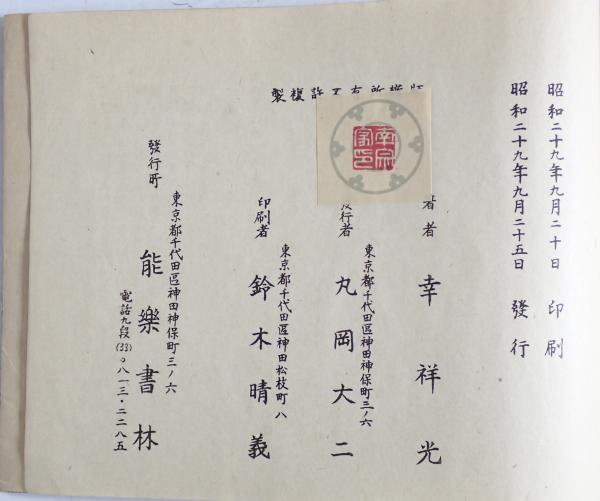 昭和二十九年九月二十日 印刷
昭和二十九年九月二十五日 發行
版權所有不許複製
幸宗家印
著者 幸祥光
東京都千代田區神田神保町三ノ六
發行者 丸岡大二
東京都千代田區神田松枝町八
印刷者 鈴木晴義
東京都千代田區神田神保町三ノ六
發行所 能樂書林
電話九段(33)〇八一三・二二八五